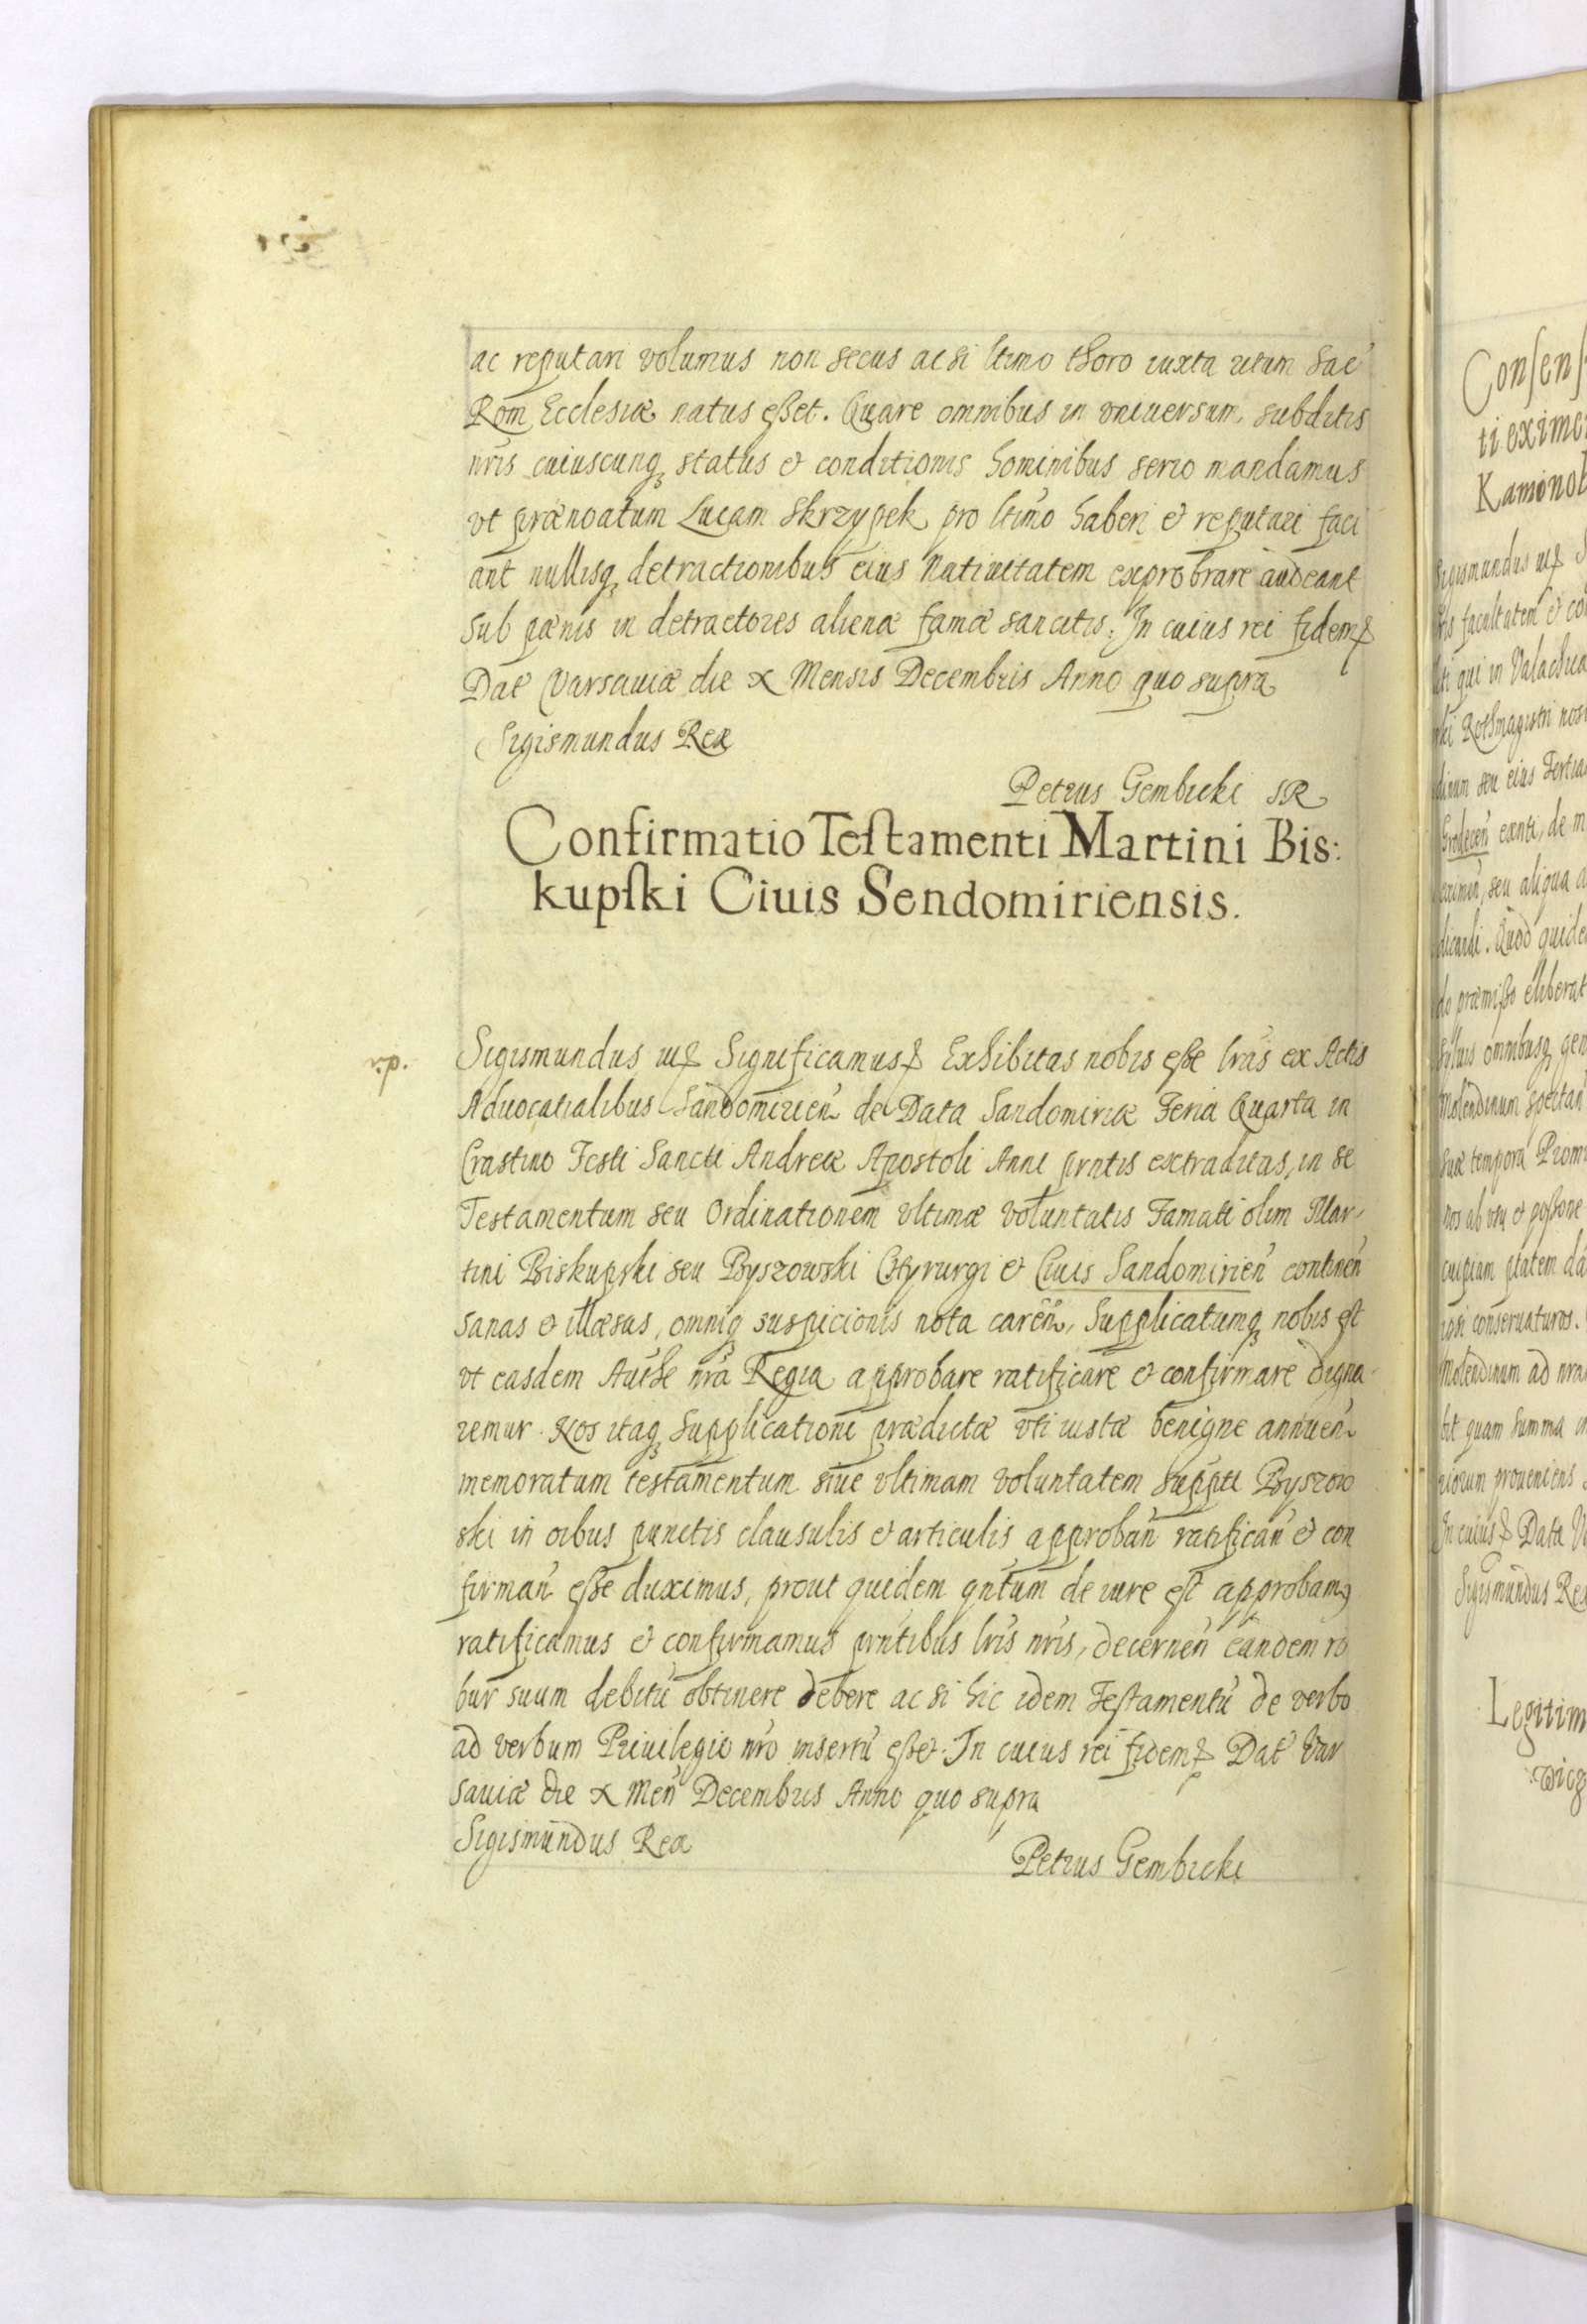 ac reputari volumus non secus ac si ltimo thoro iuxta ritum Sac
Rom Ecclesiæ natus esset. Quare omnibus in vniuersum subditis
nris cuiuscunq status & conditionis hominibus serio mandamus
vt prænoatum Lucam Skrzypek pro ltimo haberi & reputari faci
ant nullisq detractionibus eius Natiuitatem exprobrare audeant
sub pænis in detractores alienæ famæ sancitis. In cuius rei fidem
Dat Varsauiæ die X Mensis Decembris Anno quo supra
Sigismundus Rex
Petrus Gembicki SR
Confirmatio Testamenti Martini Bis:
kupski Ciuis Sendomiriensis.
rp.
Sigismundus iii Significamus Exhibitas nobis esse lras ex Actis
Aduocatialibus Sandomirien de Data Sandomiriæ Feria Quarta in
Crastino Festi Sancti Andreæ Apostoli Anni prntis extraditas, in se
Testamentum seu Ordinationem vltimæ voluntatis Famati olim Mar
tini Biskupski seu Byszowski Chyrurgi & Ciuis Sandomirien continen
sanas & illæsas, omniq suspicionis nota caren, Supplicatumq nobis est
vt easdem Authe nra Regia approbare ratificare & confirmare digna
remur. Nos itaq Supplicationi prædictæ vti iustæ benigne annuen
memoratum testamentum siue vltimam voluntatem suppti Byszow
ski in oibus punctis clausulis & articulis approban ratifican & con
firman esse duximus, prout quidem qntum de iure est approbam9
ratificamus & confirmamus prntibus lris nris, decernen eandem ro
bur suum debitu obtinere debere ac si hic idem Testamentu de verbo
ad verbum Priuilegio nro insertu esset. In cuius rei fidem Dat Var
sauiæ die X Men Decembris Anno quo supra
Sigismundus Rex
Petrus Gembicki
Consens
ti exime
Kaminot
Sigismundus iii
facultatem & co
qui in Valachia
Rothmagistri nos
seu eius Tertia
exnti, de m
seu aliqua a
Quod quide
præmisso eliberat
omnibusq gen
Molendinum spectan
suæ tempora Prom
nos ab vsu & possone
ptatem da
conseruaturos.
Molendinum ad nra
quam summa in
proueniens
In cuius Data V
Sigismundus Rex
Legitim
wicz